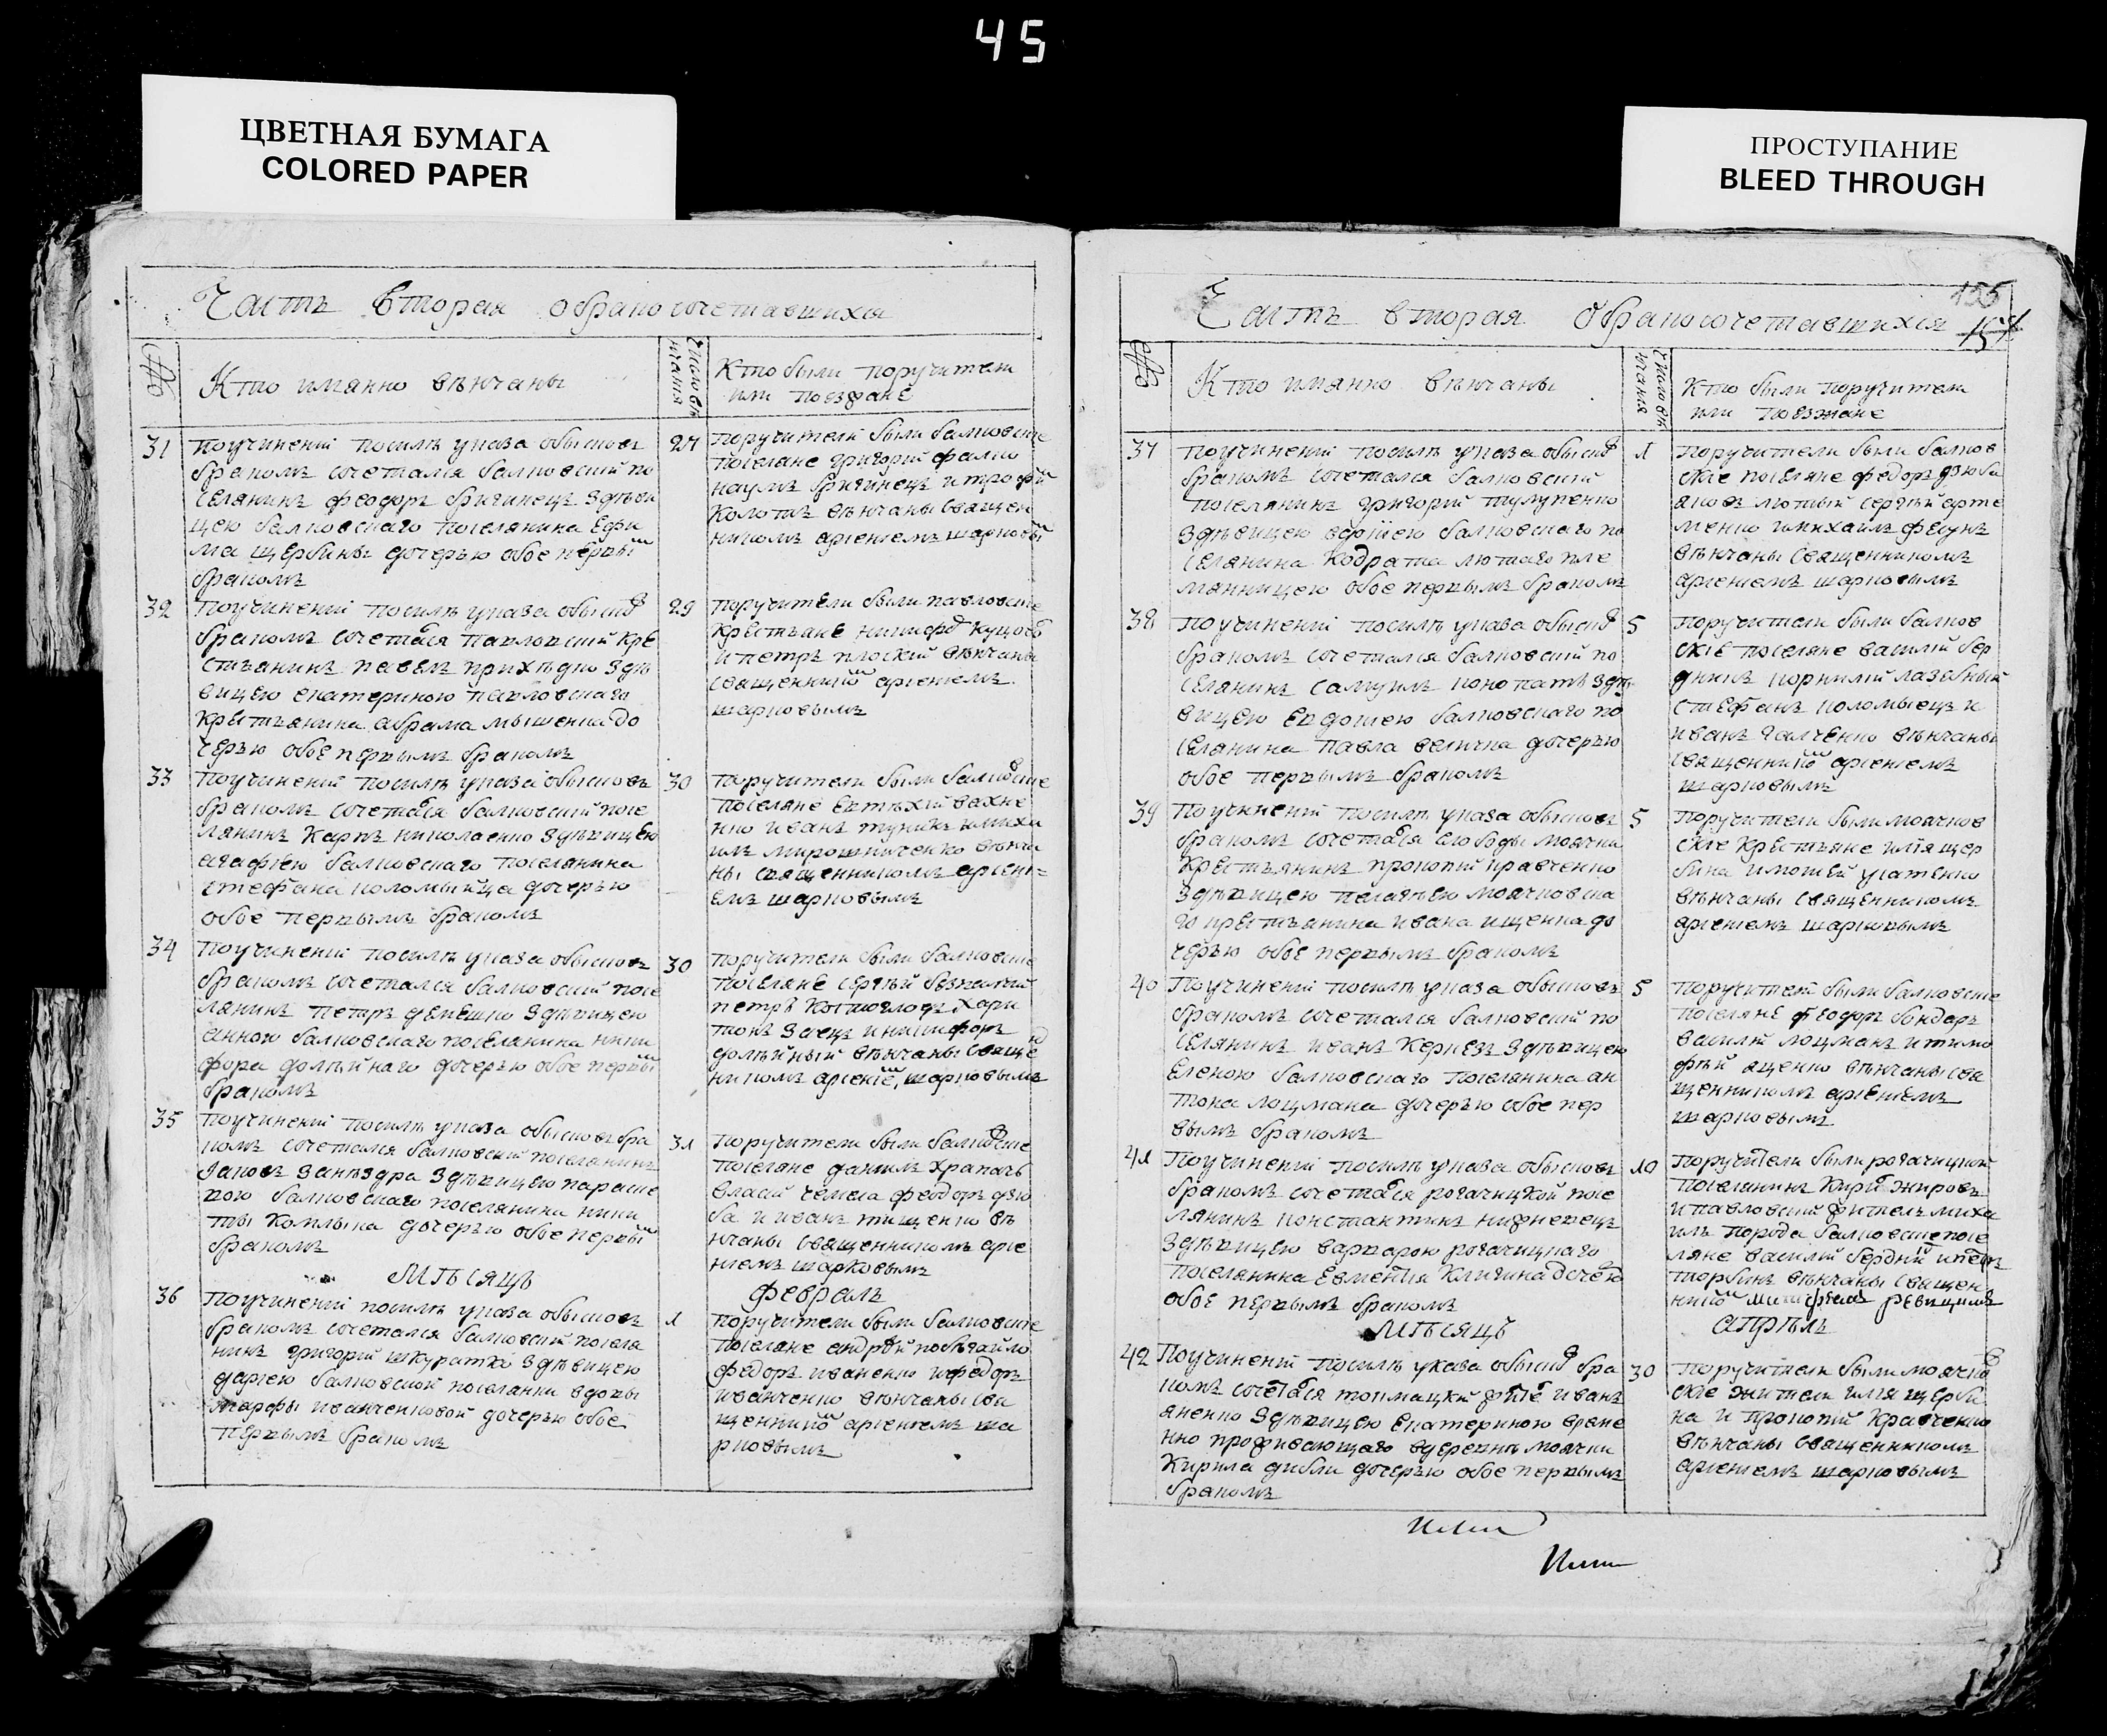 45
ЦВЕТНАЯ БУМАГА
COLORED PAPER
ПРОСТУПАНИЕ
BLEED THROUGH
Часть вторая обракосочетавшихся
№
Кто имянно вѣнчаны
Число вѣнчания
Кто были поручители
или поезжане
31
Поучинений посилѣ указа обысковъ
бракомъ сочетался балковский по
селянинъ феодоръ бригинецъ здѣви
цею балковскаго поселянина Ефи
ма щербины дочерью обое первым
бракомъ
27
Поручители были балковские
поселяне григорий
наумъ бригинецъ и трофим
вѣнчаны священ
никомъ арсениемъ шарковым
32
Поучинений посилѣ указа обысков
бракомъ сочетался павловский кре
стьянинъ павелъ прихѣдко здѣ
вицею екатериною павловскаго
крестьянина абрама мышенка до
черью обое первымъ бракомъ
29
Поручители были павловские
крестьяне
и петръ плоский вѣнчаны
священником арсениемъ
шарковымъ
33
Поучинений посилѣ указа обысковъ
бракомъ сочетался балковский посе
лянинъ карпъ николаенко здѣвицею
агафиею балковскаго поселянина
стефана коломыйца дочерью
обое первымъ бракомъ
30
Поручители были балковские
поселяне Евтѣхий вахне
нко иванъ тупикъ имиха
илъ мирошниченко вѣнча
ны священникомъ арсени=
емъ шарковымъ
34
Поучинений посилѣ указа обысковъ
бракомъ сочетался балковский посе
лянинъ петръ демешко здѣвицею
анною балковскаго поселянина ники
фора долѣйнаго дочерью обое первым
бракомъ
30
Поручители были балковские
поселяне сергѣй безпалый
петръ хари
тонъ заецъ и никифоръ
долѣйный вѣнчаны свяще
никомъ арсение, шарковымъ
35
Поучинений посилѣ указа обысковъ бра
комъ сочетался балковский поселянинъ
яковъ занѣздра здѣвицею параске
вою балковскаго поселянина ники
ты дочерью обое первым
бракомъ
31
Поручители были балковские
поселяне данилъ храпачъ
власий чемеса феодоръ дзю
ба и иванъ тищенко вѣ
нчаны священникомъ арсе
ниемъ шарковымъ
Мѣсяцъ
февраль
36
Поучинений посилѣ указа обысковъ
бракомъ сочетался балковский поселя
нинъ григорий шкуратко здѣвицею
дариею балковской поселянки вдовы
марфы иванченковой дочерью обое
первымъ бракомъ
1
Поручители были балковские
поселяне андрѣй побѣгайло
федоръ иваненко ифедоръ
иванченко вѣнчаны свя
щенником арсениемъ ша
рковымъ
155
Часть вторая обракосочетавшихся
№
Кто имянно вѣнчаны
Число вѣнчания
Кто были поручители
или поезжане
37
Поучинений посилѣ указа обысков
бракомъ сочетался балковский
поселянинъ григорий тулупенко
здѣвицею балковскаго по
селянина кодрата лютаго пле
мянницею обое первымъ бракомъ
1
Поручители были балков
ские поселяне федоръ дзюба
яковъ лютый сергѣй арте
менко имихаилъ фесунъ
вѣнчаны священникомъ
арсениемъ шарковымъ
38
Поучинений посилѣ указа обысков
бракомъ сочетался балковский по
селянинъ самуилъ конопатъ здѣ
вицею Евдокиею балковскаго по
селянина павла величка дочерью
обое первымъ бракомъ
5
Поручители были балков
ские поселяне василий бер
дникъ корнилий лазебный
стефанъ коломыецъ и
иванъ галченко вѣнчаны
священником арсениемъ
шарковымъ
39
Поучинений посилѣ указа обысковъ
бракомъ сочетался слободы моячки
крестьянинъ прокопий кравченко
здѣвицею пелагѣею моячковска
го крестьянина ивана ищенка до
черью обое первымъ бракомъ
5
Поручители были моячков
ские крестьяне илия щер
бина имосѣй
вѣнчаны священникомъ
арсениемъ шарковымъ
40
Поучинений посилѣ указа обысковъ
бракомъ сочетался балковский по
селянинъ иванъ здѣвицею
Еленою балковскаго поселянина ан
тона лоцмана дочерью обое пер
вымъ бракомъ
5
Поручители были балковские
поселяне феодоръ бондаръ
василий лоцманъ и тимо
фѣй яценко вѣнчаны свя
щенникомъ арсениемъ
шарковымъ
41
Поучинений посилѣ указа обысковъ
бракомъ сочетался рогачицкой посе
лянинъ константинъ
здѣвицею варварою рогачицкаго
поселянина Евментия дочерю
обое первымъ бракомъ
10
Поручители были рогачицкой
поселянинъ жировъ
и павловский житель миха
илъ порода балковские посе
ляне василий бердник ипетръ
торбинъ вѣнчаны священ
ником ревицким
Мѣсяцъ
Апрѣль
42
Поучинений посилѣ указа обысков бра
комъ сочетался токмацкий жите иванъ
яненко здѣвицею Екатериною време
нно проживающаго вдеревнѣ моячки
Кирила дибли дочерью обое первымъ
бракомъ
30
Поручители были моячков
ские жители илия щерби
на и прокопий кравченко
вѣнчаны священникомъ
арсениемъ шарковымъ